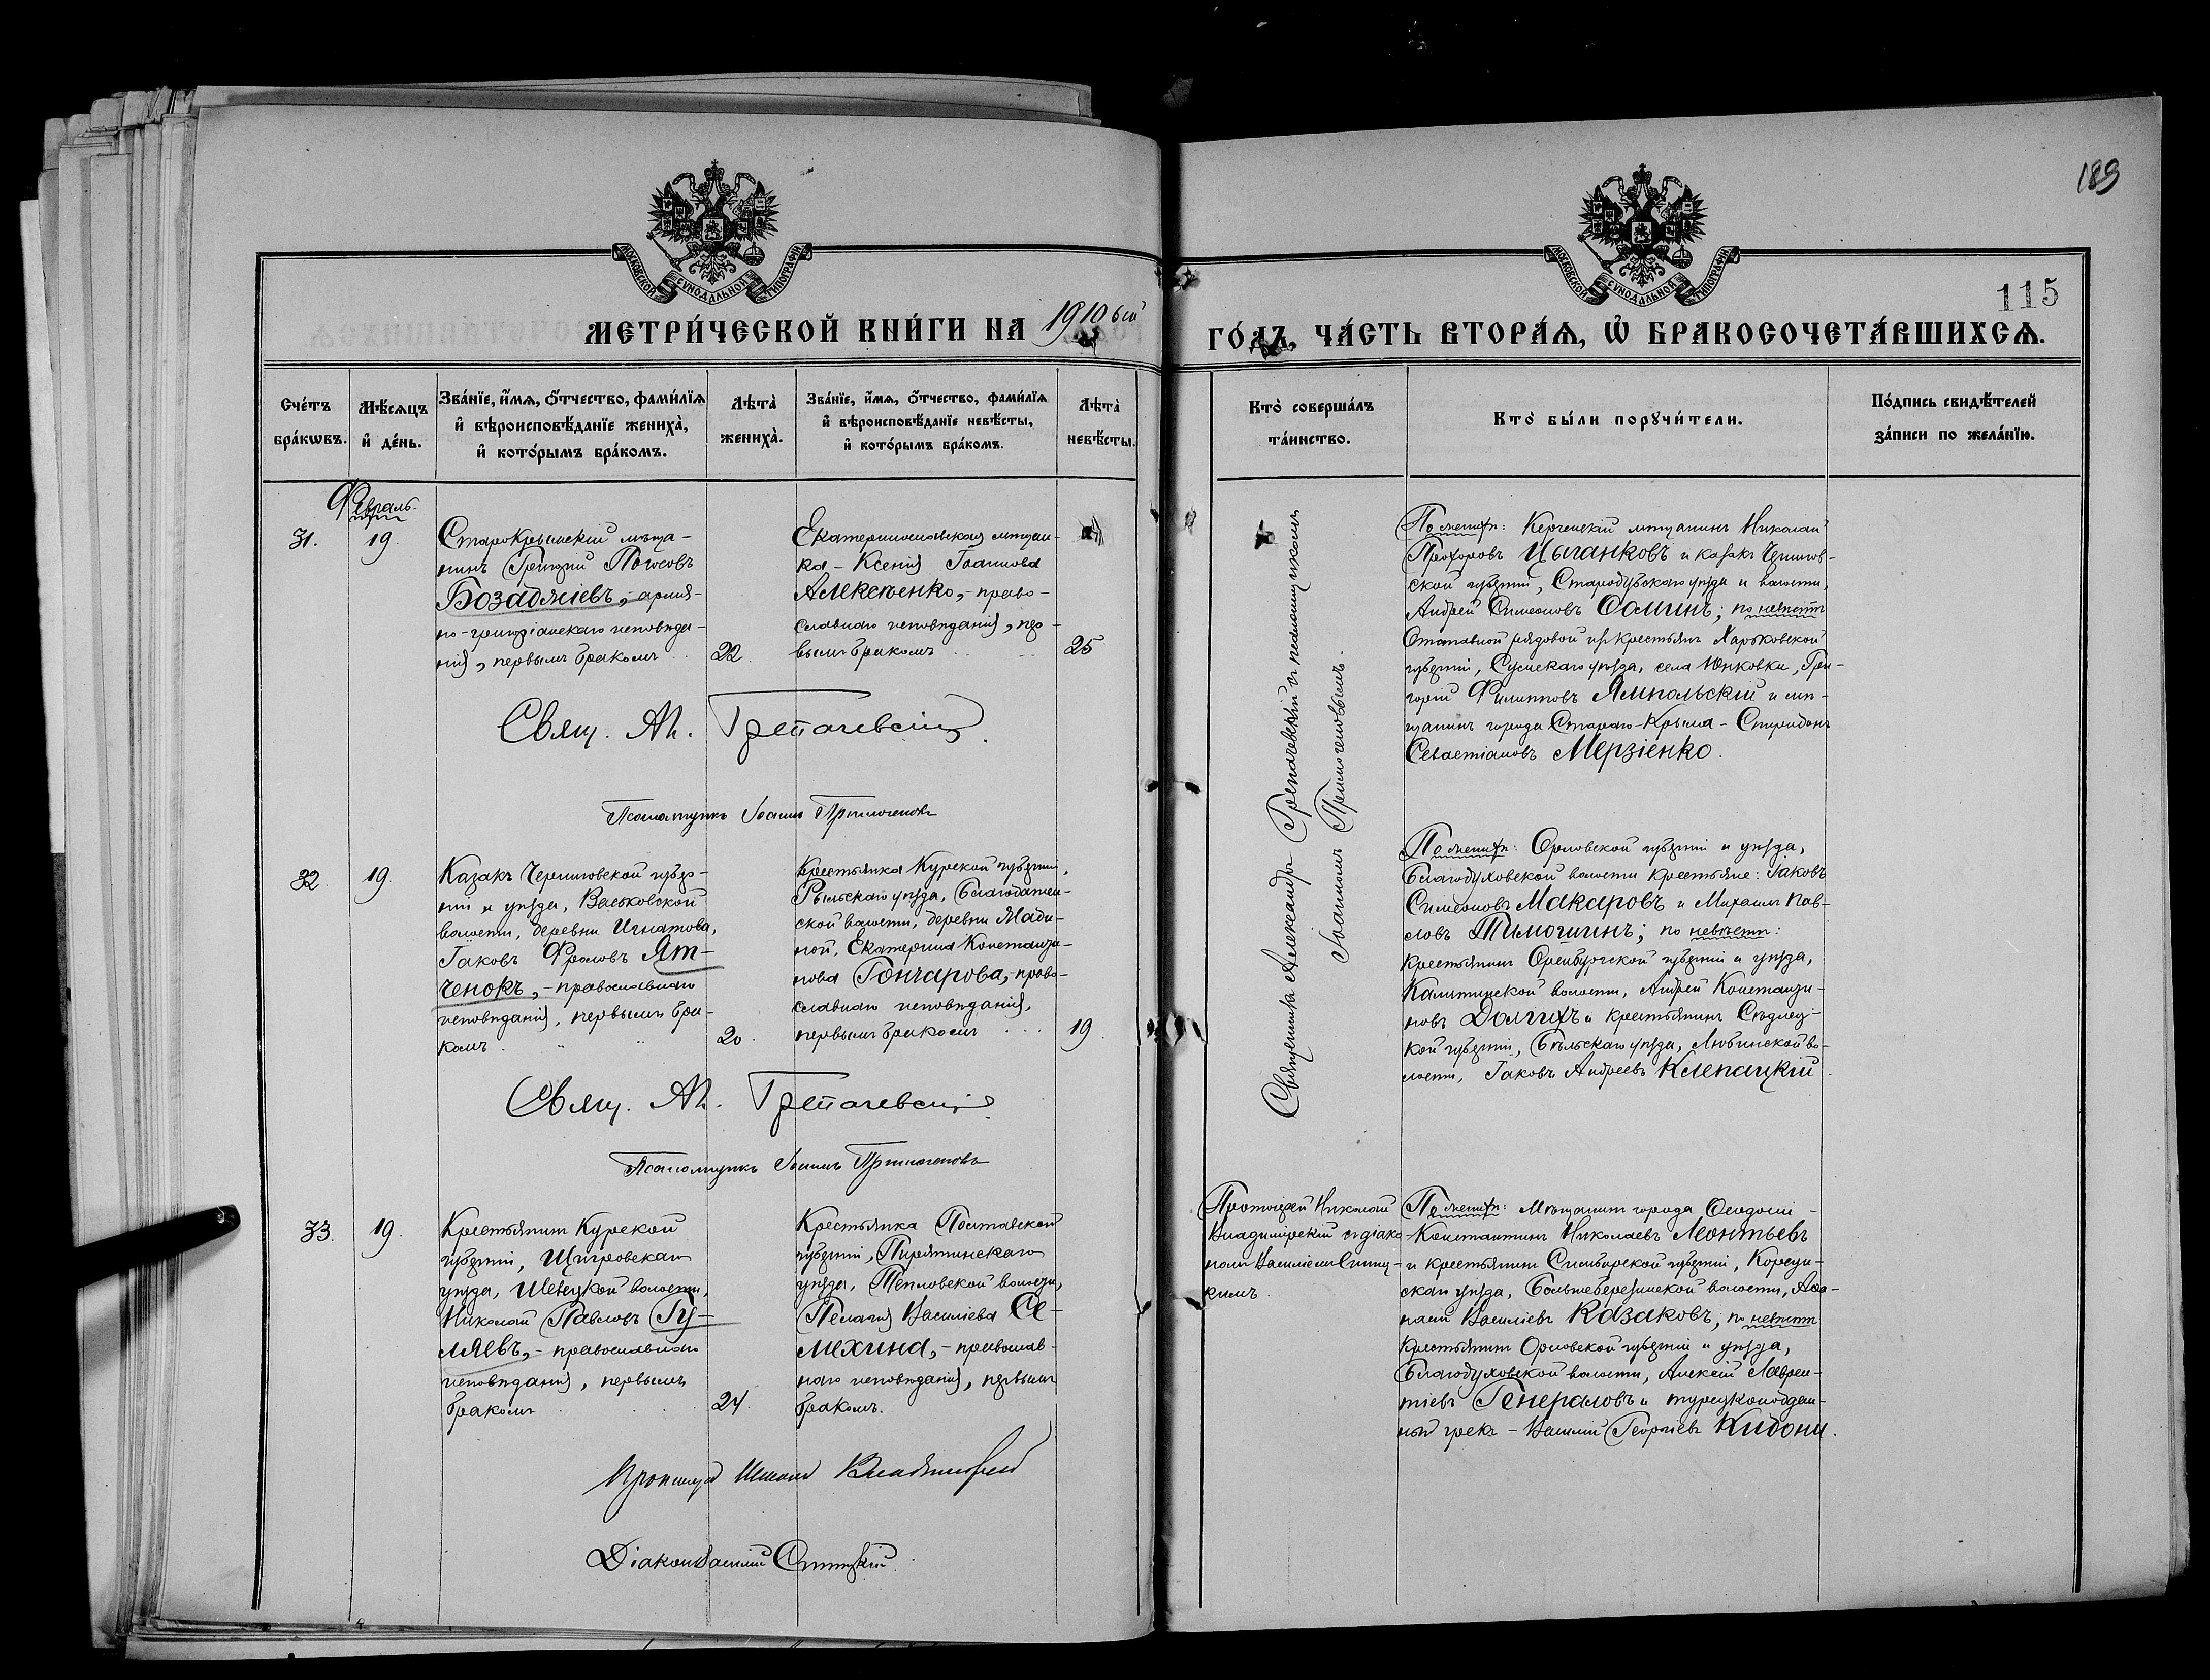 189
МОСКОВСКОЙ СѴНОДАЛЬНОЙ ТИПОГРАФІИ
МЕТРИ́ЧЕСКОЙ КНИ́ГИ НА 1910ый
Сче́тъ бра́кωвъ.
Мѣ́сѧцъ и҆ де́нь.
Зва́нїе, и҆́мѧ, ѻ҆́тчество, фами́лїѧ
и҆ вѣроисповѣ́данїе жениха̀,
и҆ кото́рымъ бра́комъ.
Лѣта̀ жениха̀.
Зва́нїе, и҆́мѧ, ѻ҆́тчество, фами́лїѧ
и҆ вѣроисповѣ́данїе невѣ́сты,
и҆ кото́рымъ бра́комъ.
Лѣта̀ невѣ́сты.
Февраль.
31.
19.
Старокрымскій мѣща-
нинъ Григорій Погосовъ
Бозаджіевъ,- армя-
но-григоріанскаго исповѣда-
нія, первымъ бракомъ
22.
Екатеринославская мѣщан-
ка - Ксенія Іоаннова
Алексѣенко,- право-
славнаго исповѣданія, пер-
вымъ бракомъ
25
Свящ. Ал. Грепачевскій
Псаломщикъ Іоаннъ
32.
19.
Казакъ Черниговской губер-
ніи и уѣзда,
волости, деревни Игнатова,
Іаковъ Фроловъ Ят-
ченокъ,- православнаго
исповѣданія, первымъ бра-
комъ.
20.
Крестьянка Курской губерніи,
Рыльскаго уѣзда, Благодатен-
ской волости, деревни
Екатерина Константи-
нова Гончарова,- право-
славнаго исповѣданія,
первымъ бракомъ
19.
Свящ. Ал. Грепачевскій
Псаломщикъ Іоаннъ
33.
19.
Крестьянинъ Курской
губерніи, Щигровскаго
уѣзда, волости,
Николай Павловъ Гу-
ляевъ,- православнаго
исповѣданія, первымъ
бракомъ
24.
Крестьянка Полтавской
губерніи, Пирятинскаго
уѣзда, Тепловской волости,
Пелагія Васильева Се-
мехина,- православ-
наго исповѣданія, первымъ
бракомъ.
Протоіерей Николай Владимірскій
Діаконъ Василій
МОСКОВСКОЙ СѴНОДАЛЬНОЙ ТИПОГРАФІИ
115
ГО́ДЪ, ЧА́СТЬ ВТОРА́Ѧ, Ѽ БРАКОСОЧЕТА́ВШИХСѦ.
Кто̀ соверша́лъ
та́инство.
Кто̀ бы́ли порꙋчи́тели.
По́дпись свидѣ́телей
за́писи по жела́нїю.
Священникъ Александръ Грепачевскій съ псаломщикомъ
Іоанномъ
По женихѣ: Керченскій мѣщанинъ Николай
Прохоровъ Цыганковъ и казакъ Чернигов-
ской губерніи, Стародубскаго уѣзда и волости,
Андрей Симеоновъ Соминъ; по невѣстѣ
Отставной рядовой изъ крестьянъ Харьковской
губерніи, Сумскаго уѣзда, села Юнковки, Гри-
горій Филипповъ Ямпольскій и мѣ-
щанинъ города Стараго-Крыма - Спиридонъ
Севастіановъ Мерзіенко.
По женихѣ: Орловской губерніи и уѣзда,
Благодуховской волости крестьяне: Іаковъ
Симеоновъ Макаровъ и Михаилъ Пав-
ловъ Тимошинъ; по невѣстѣ:
крестьянинъ Оренбургской губерніи и уѣзда,
волости, Андрей Константи-
новъ Долгихъ и крестьянинъ Сѣдлец-
кой губерніи, Бѣльскаго уѣзда, во-
лости, Іаковъ Андреевъ Клепацкій
Протоіерей Николай
Владимірскій съ діако-
номъ Василіемъ
По женихѣ: Мѣщанинъ города Ѳеодосіи -
Константинъ Николаевъ Леонтьевъ
и крестьянинъ Симбирской губерніи, Корсун-
скаго уѣзда, Большеберезинской волости, Аѳа-
насій Василіевъ Казаковъ; по невѣстѣ
крестьянинъ Орловской губерніи и уѣзда,
Благодуховской волости, Алексій Лаврен-
тіевъ Генераловъ и турецкоподдан-
ный грекъ - Василій Георгіевъ Кидони.